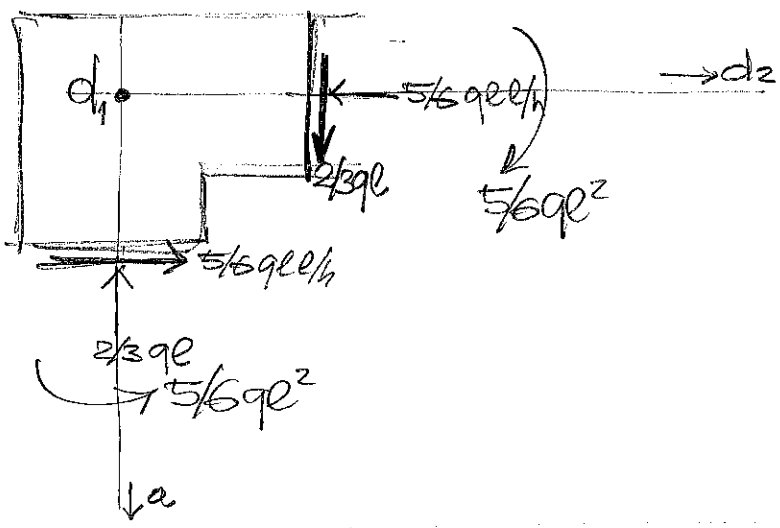 d₁
5/6 qll/h
→d2
2/3ql
5/6ql²
5/6qll/h
2/3 ql
5/6ql²
↓a